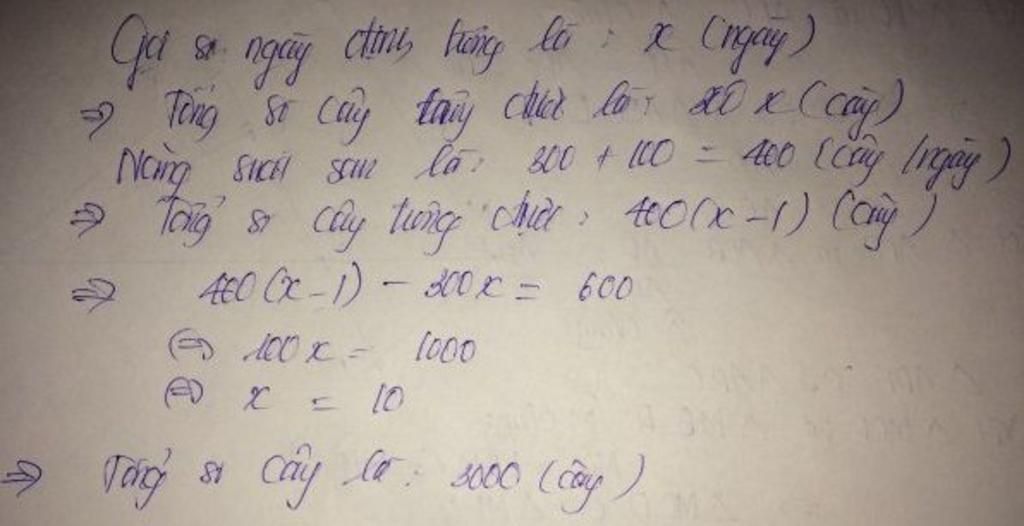 Gọi số ngày định trồng là : x (ngày)
=> Tổng số cây trồng được là : 300 x (cây)
Năng suất sau là : 300 + 100 = 400 (cây /ngày)
=> Tổng số cây trồng được : 400(x-1) (cây)
=> 400(x-1) - 300x = 600
(=) 100x = 1000
(=) x = 10
=> Tổng số cây là : 3000 (cây)